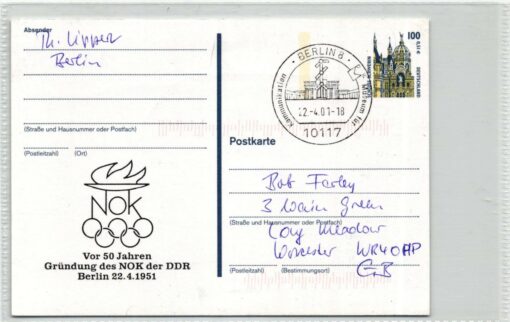 Absender
Th. Lippert
Berlin
(Straße und Hausnummer oder Postfach)
(Postleitzahl) (Ort)
NOK
Vor 50 Jahren
Gründung des NOK der DDR
Berlin 22.4.1951
BERLIN 8
Museum für
Kommunikation
22.-4.01-18
10117
100
0,51 €
DEUTSCHLAND
Postkarte
Bob Farley
3 Wain Green
(Straße und Hausnummer oder Postfach)
Long Meadow
Worcester WR4 0HP
GB
(Postleitzahl) (Bestimmungsort)